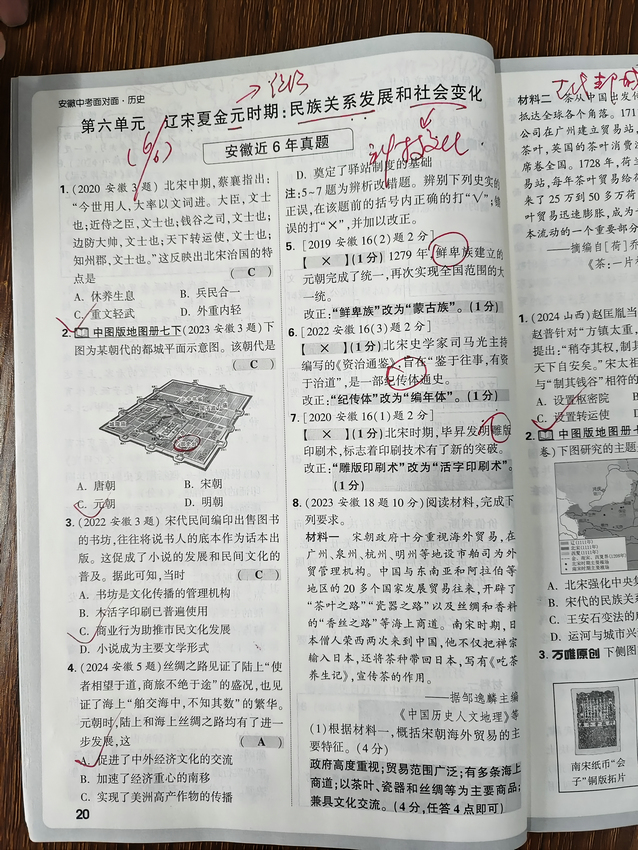 安徽中考面对面·历史
第六单元 辽宋夏金元时期:民族关系发展和社会变化
安徽近6年真题
1.(2020 安徽 3题)北宋中期,蔡襄指出:
“今世用人,大率以文词进。大臣,文士
也;近侍之臣,文士也;钱谷之司,文士也;
边防大帅,文士也;天下转运使,文士也;
知州郡,文士也。”这反映出北宋治国的特
点是 (C)
A. 休养生息 B. 兵民合一
C. 重文轻武 D. 外重内轻
2. 中图版地图册七下(2023 安徽 3题)下
图为某朝代的都城平面示意图。该朝代是
(C)
A. 唐朝 B. 宋朝
C. 元朝 D. 明朝
3.(2022 安徽 3题)宋代民间编印出售图书
的书坊,往往将说书人的底本作为话本出
版。这促成了小说的发展和民间文化的
普及。据此可知,当时 (C)
A. 书坊是文化传播的管理机构
B. 木活字印刷已普遍使用
C. 商业行为助推市民文化发展
D. 小说成为主要文学形式
4.(2024 安徽 5题)丝绸之路见证了陆上“使
者相望于道,商旅不绝于途”的盛况,也见
证了海上“舶交海中,不知其数”的繁华。
元朝时,陆上和海上丝绸之路均有了进一
步发展,这 (A)
A. 促进了中外经济文化的交流
B. 加速了经济重心的南移
C. 实现了美洲高产作物的传播
20
D. 奠定了驿站制度的基础
注:5~7题为辨析改错题。辨别下列史实的
正误,在该题前的括号内正确的打“√”;错
误的打“×”,并加以改正。
5.[2019 安徽 16(2)题 2分]
【×】(1分)1279年,鲜卑族建立的
元朝完成了统一,再次实现全国范围的大
一统。
改正:“鲜卑族”改为“蒙古族”。(1分)
6.[2022 安徽 16(3)题 2分]
【×】(1分)北宋史学家司马光主持
编写的《资治通鉴》,旨在“鉴于往事,有资
于治道”,是一部纪传体通史。
改正:“纪传体”改为“编年体”。(1分)
7.[2020 安徽 16(1)题 2分]
【×】(1分)北宋时期,毕昇发明雕版
印刷术,标志着印刷技术有了新的突破。
改正:“雕版印刷术”改为“活字印刷术”。
(1分)
8.(2023 安徽 18题 10分)阅读材料,完成下
列要求。
材料一 宋朝政府十分重视海外贸易,在
广州、泉州、杭州、明州等地设市舶司为外
贸管理机构。中国与东南亚和阿拉伯等
地区的20多个国家发展贸易往来,开辟了
“茶叶之路”“瓷器之路”以及丝绸和香料
的“香丝之路”等海上商道。南宋时期,日
本僧人荣西两次来到中国,他不仅把禅宗
输入日本,还将茶种带回日本,写有《吃茶
养生记》,宣传茶的作用。
——据邹逸麟主编
《中国历史人文地理》等
(1)根据材料一,概括宋朝海外贸易的主
要特征。(4分)
政府高度重视;贸易范围广泛;有多条海上
商道;以茶叶、瓷器和丝绸等为主要商品;
兼具文化交流。(4分,任答4点即可)
材料二 茶从中国出发传
抵达全球各个角落。171
公司在广州建立贸易站,
茶叶,英国的茶叶消费
席卷全国。1728年,荷
易站,每年茶叶贸易给
来了25万到50多万荷
叶贸易迅速膨胀,成为
本流动的一个重要部分
——摘编自[荷]乔
《茶:一片
1.(2024 山西)赵匡胤当
赵普针对“方镇太重,
提出:“稍夺其权,制
天下自安矣。”宋太祖
与“制其钱谷”相符的
A. 设置枢密院
C. 设置转运使
2. 中图版地图册七
卷)下图研究的主题
A. 北宋强化中央集
B. 宋代的民族关系
C. 王安石变法的
D. 运河与城市兴
3. 万唯原创 下侧图
南宋纸币“会
子”铜版拓片